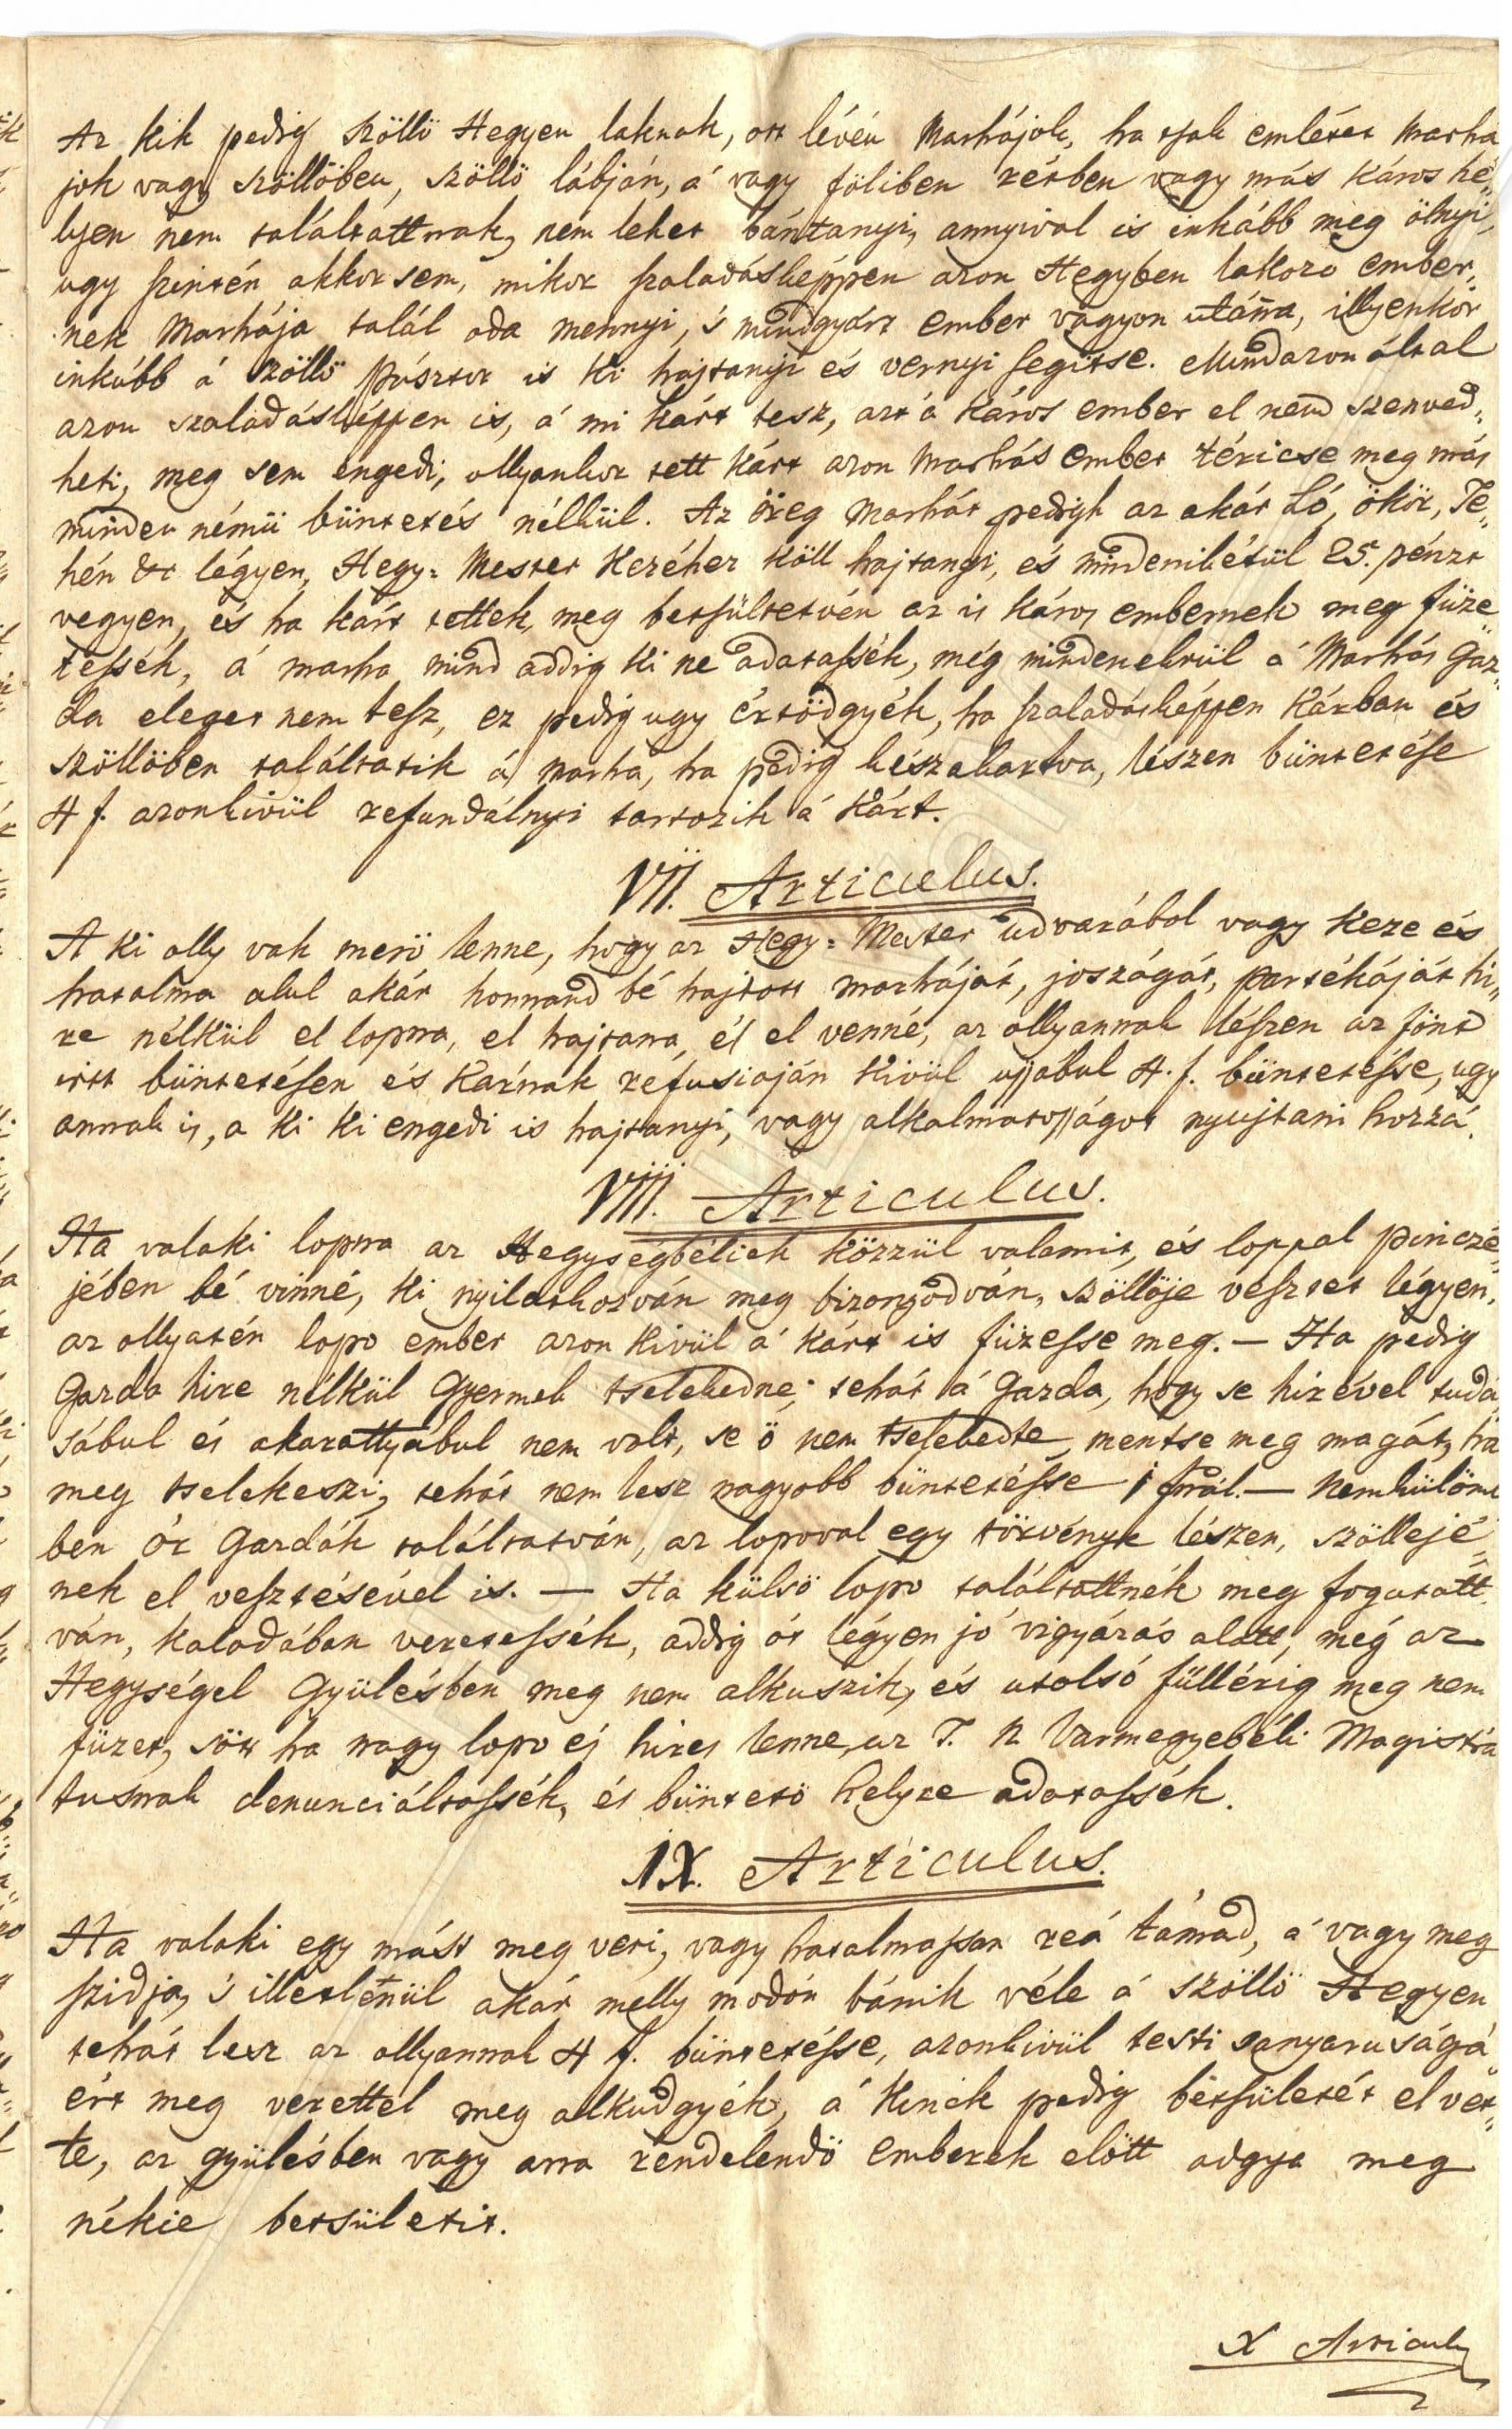 Az kik pedig szöllö Hegyen laknak, ott lévén Marhájok, ha tsak emlétet Marhá
jok vagy szöllöben, szöllö lábján, á vagy föliben rétben vagy más káros hé„
lyen nem találtattnak, nem lehet bántanyi, annyival is inkább meg ölnyi,
ugy szintén akkor sem, mikor szaladásképpen azon Hegyben lakozo ember„
nek Marhája talál oda mennyi, 's mindgyárt ember vagyon utánna, illyenkor
inkább á szöllö pásztor is ki hajtanyi és vernyi segitse. Mindazon által
azon szaladásképpen is, á mi kárt tesz, azt á káros ember el nem szenved„
heti, meg sem engedi, ollyankor tett kárt azon Marhás ember téricse meg más
minden némü büntetés nélkül. Az öreg Marhát pedigh az akár Ló, ökör, Te„
hén &c légyen, Hegy= Mester kezéhez köll hajtanyi, és mindenikétül 25. pénzt
vegyen, és ha kárt tettek, meg betsültetvén az is káros embernek meg füze
tessék, á marha mind addig ki ne adatassék, még mindenekrül á Marhás Gaz„
da eleget nem tesz, ez pedig ugy értödgyék, ha szaladásképpen kárban és
szöllöben találtatik á marha, ha pedig készakartva, lészen büntetése
4 f. azonkivül refundálnyi tartozik á kárt.
VII. Articulus.
A ki olly vak merö lenne, hogy az Hegy= Mester udvarábol vagy keze és
hatalma alul akár honnand bé hajtott marháját, joszágát, partékáját hi„
re nélkül el lopna, el hajtana, és el venné, az ollyannak lészen az fönt
irtt büntetésen és Kárnak refusioján kivül ujjabul 4. f. büntetésse, ugy
annak is, a ki ki engedi is hajtanyi, vagy alkalmatosságot nyujtani hozzá.
VIII. Articulus.
Ha valaki lopna az Hegységbéliek közzül valamit, és loppal pinczé„
jében bé vinné, ki nyilatkozván meg bizonyodván, szöllöje vesztet légyen,
az ollyatén lopo ember azon kivül á kárt is füzesse meg. — Ha pedig
Gazda hire nélkül Gyermek tselekedne; tehát á Gazda, hogy se hirével tudá
sábul és akarattyábul nem volt, se ö nem tselekedte, mentse meg magát, ha
meg tselekeszi, tehát nem lesz nagyobb büntetésse 1 fnál. — Nemkülöm
ben Ór Gazdák találtatván, az lopoval egy törvénye lészen, szölleje„
nek el vesztésével is. — Ha külsö lopo találtattnék meg fogatatt
ván, kalodában veretessék, addig ót légyen jó vigyázás alatt, még az
Hegységel Gyülésben meg nem alkuszik, és utolsó füllérig meg nem
füzet, sött ha nagy lopo és hires lenne, az T. N. Varmegyebéli Magistra
tusnak denunciáltassék, és büntetö helyre adatassék.
IX. Articulus.
Ha valaki egy mást meg veri, vagy hatalmassan reá támad, á vagy meg
szidja, 's illetlenül akár melly modón bánik véle á szöllö Hegyen
tehát lesz az ollyannak 4 f. büntetésse, azonkivül testi sanyaruságá„
ért meg verettel meg alkudgyék, á kinek pedig betsületét el vet„
te, az gyülésben vagy arra rendelendö emberek elött adgya meg
nékie betsületit.
X Articul